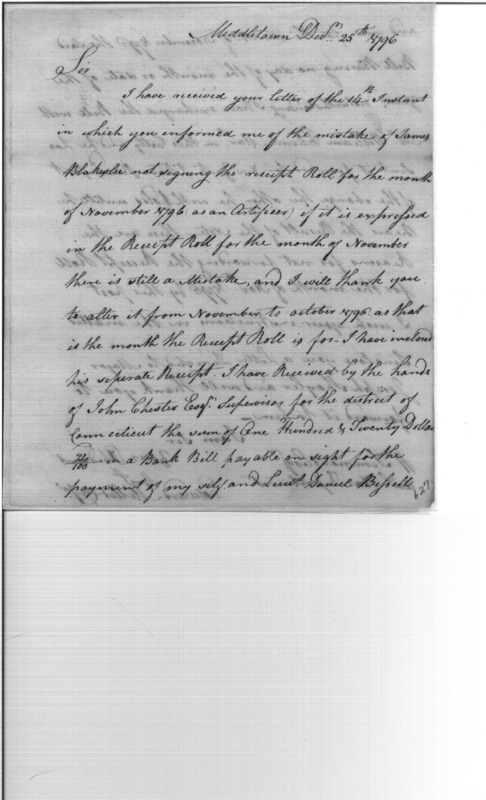 Middletown Decr. 25th 1796
Sir
I have received your letter of the 14th Instant
in which you informed me of the mistake of James
Blakeslee not signing the receipt Roll for the month
of November 1796 as an Artificer, if it is expressed
in the Receipt Roll for the month of November
there is still a Mistake, and I will thank you
to alter it from November to october 1796 as that
is the month the Receipt Roll is for. I have inclosd
his seperate Receipt. I have Received by the hands
of John Chester Esqr. Supervisor for the district of
Connecticut the sum of One Hundred & Twenty Dollars
/100 in a Bank Bill payable on sight for the
payment of my self, and Lieut. Daniel Bissell